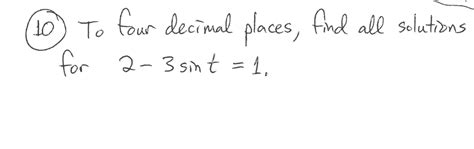 (10) To four decimal places, find all solutions
for 2 - 3 sin t = 1.